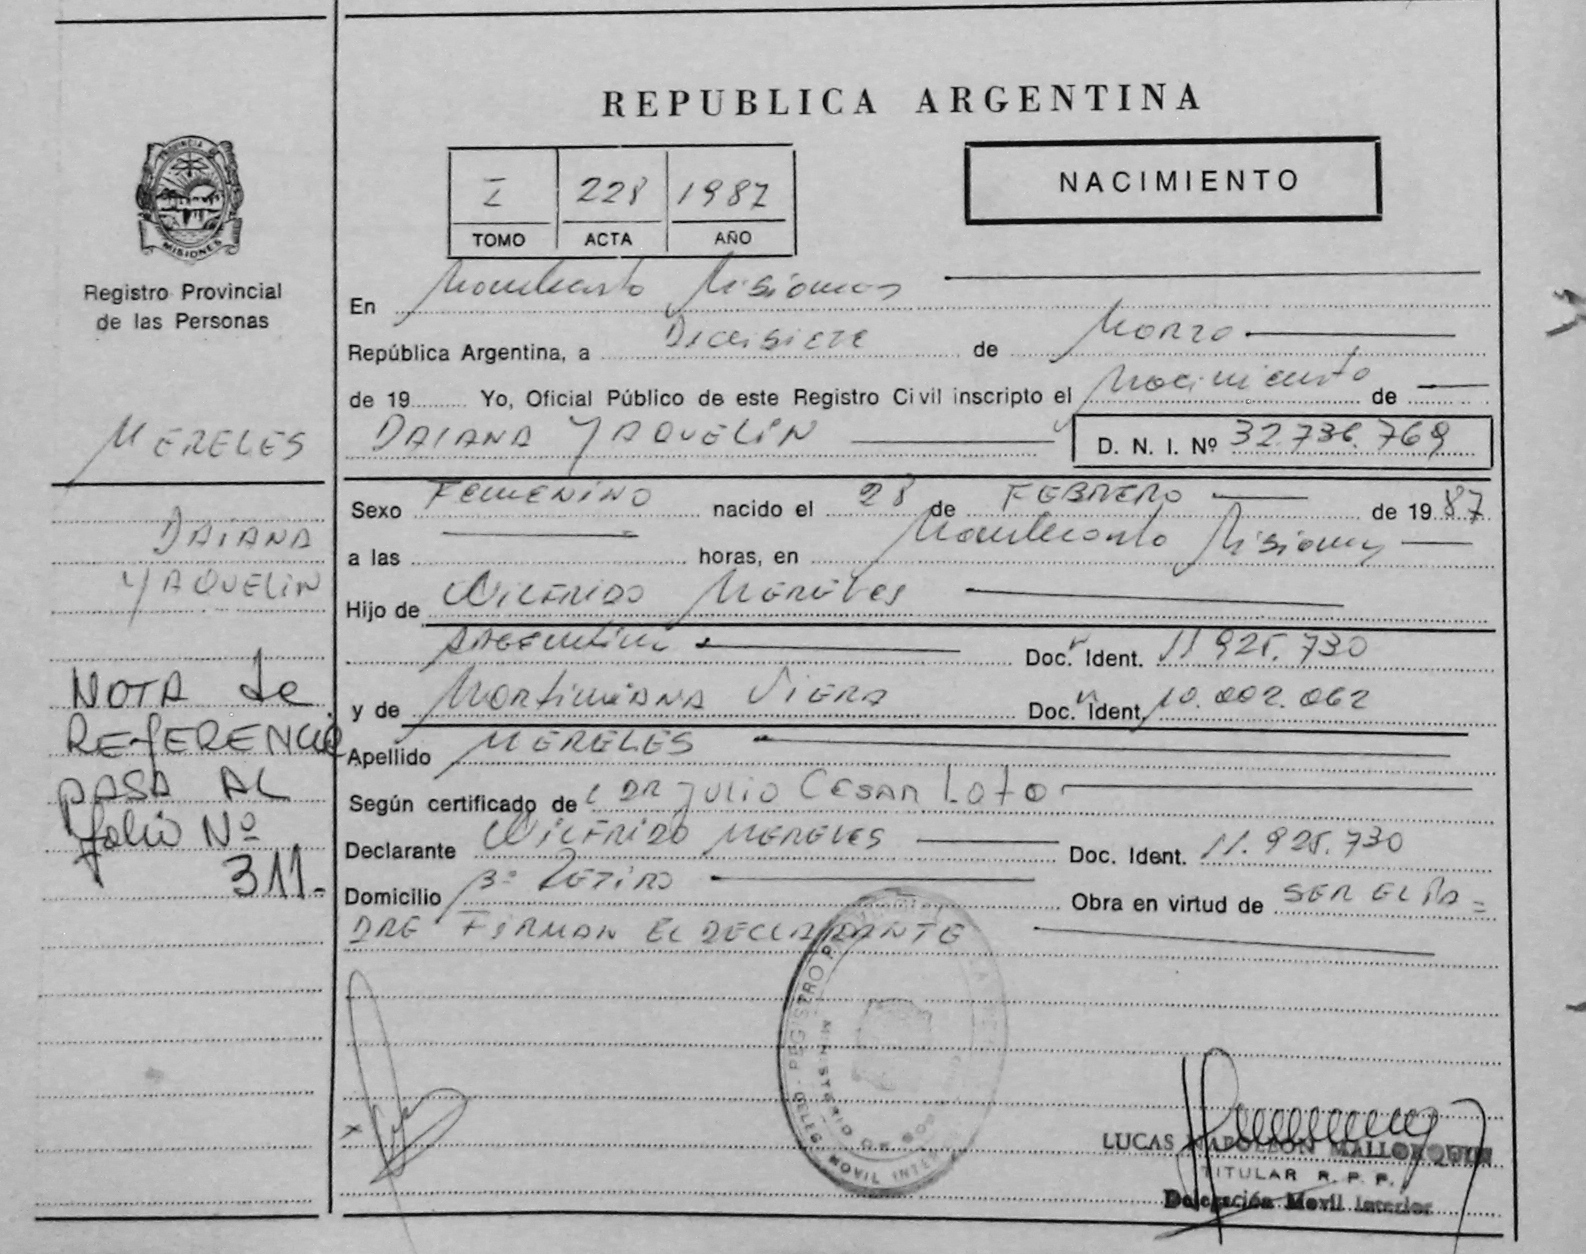 REPUBLICA ARGENTINA
PROVINCIA DE
MISIONES
Registro Provincial
de las Personas
I 228 1987
TOMO ACTA AÑO
NACIMIENTO
En Misiones
República Argentina, a Diecisiete de Marzo
de 19 Yo, Oficial Público de este Registro Civil inscripto el Nacimiento de
MERELES
DAIANA YAQUELIN D. N. I. Nº 32.736.769
Sexo FEMENINO nacido el 28 de FEBRERO de 1987
a las horas, en Misiones
DAIANA
YAQUELIN
Hijo de WILFRIDO MERELES
ARGENTINA Doc. Ident. 11.925.730
y de VIERA Doc. Ident. 10.002.062
NOTA de
REFERENCIA
PASA AL
folio Nº
311.
Apellido MERELES
Según certificado de DR JULIO CESAR LOTO
Declarante WILFRIDO MERELES Doc. Ident. 11.925.730
Domicilio Bº RETIRO Obra en virtud de SER EL PA=
DRE FIRMAN EL DECLARANTE
REGISTRO PROVINCIAL
MINISTERIO DE GOB
DELEG. MOVIL INTER
LUCAS NAPOLEON MALLORQUIN
TITULAR R. P. P.
Delegación Movil Interior